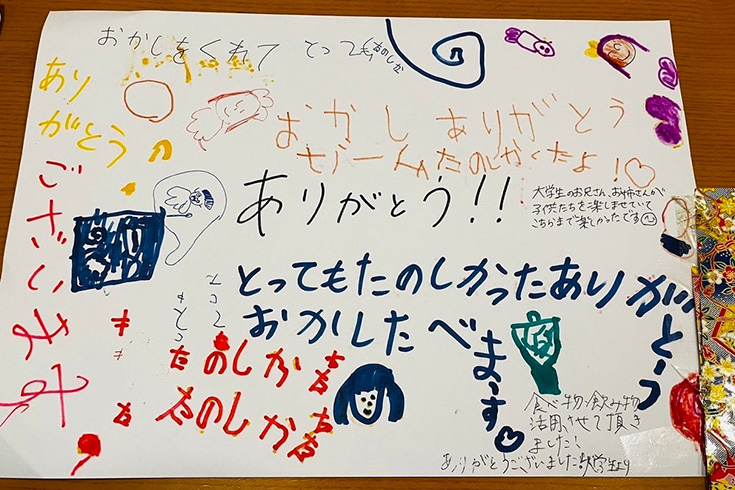 おかしをくれて とっても
たのしか
ありがとう
ございます
おかし ありがとう
たのしかたよ!♡
ありがとう!!
大学生のお兄さん、お姉さんが
子供たちを楽しませていて
こちらまで楽しかったです
とってもたのしかったありがとう
おかしたべまっす♡
とっても
たのしかった
たのしかった
食べ物、飲み物
活用させて頂き
ました!
ありがとうございました